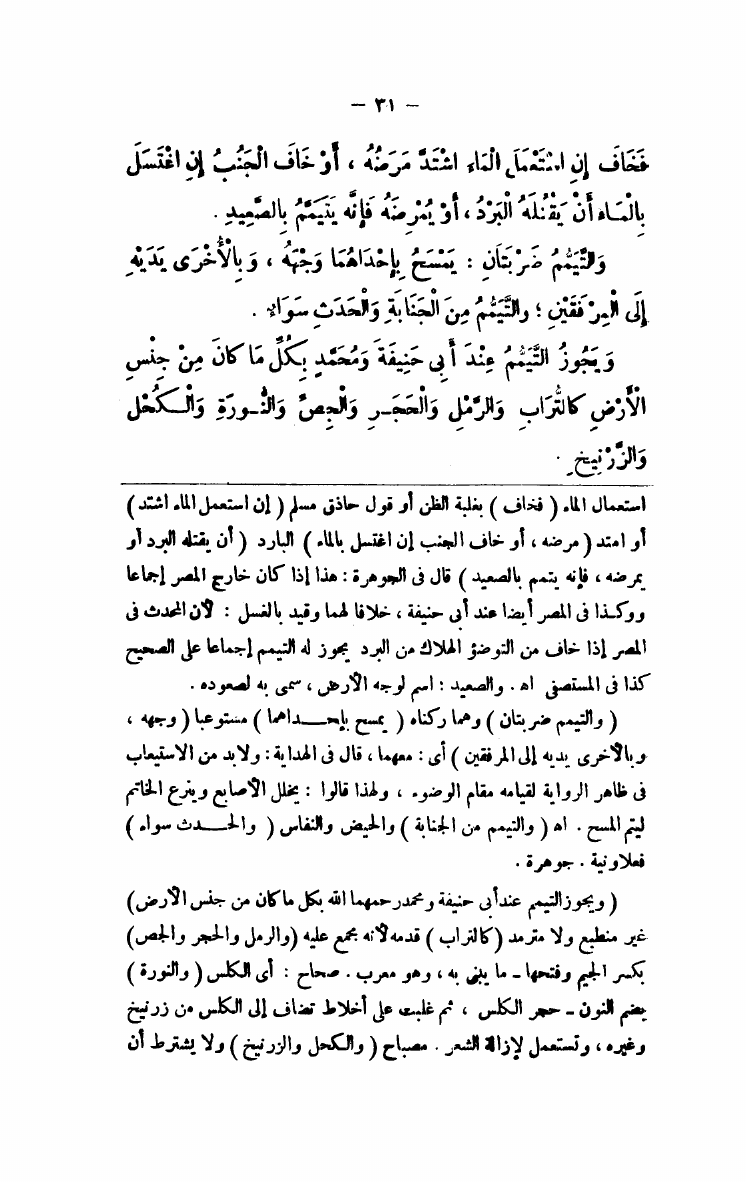 — ٣١ —
فَخَافَ إِنِ اسْتَعْمَلَ الْمَاءَ اشْتَدَّ مَرَضُهُ ، أَوْ خَافَ الْجُنُبُ إِنِ اغْتَسَلَ
بِالْمَاءِ أَنْ يَقْتُلَهُ الْبَرْدُ ، أَوْ يُمْرِضَهُ فَإِنَّهُ يَتَيَمَّمُ بِالصَّعِيدِ .
وَالتَّيَمُّمُ ضَرْبَتَانِ : يَمْسَحُ بِإِحْدَاهُمَا وَجْهَهُ ، وَبِالْأُخْرَى يَدَيْهِ
إِلَى الْمِرْفَقَيْنِ ؛ والتَّيَمُّمُ مِنَ الْجَنَابَةِ وَالْحَدَثِ سَوَاءٌ .
وَيَجُوزُ التَّيَمُّمُ عِنْدَ أَبِى حَنِيفَةَ وَمُحَمَّدٍ بِكُلِّ مَا كَانَ مِنْ جِنْسِ
الْأَرْضِ كالتُّرَابِ وَالرَّمْلِ وَالْحَجَرِ وَالْجِصِّ وَالنُّورَةِ وَالْكُحْلِ
وَالزَّرْنِيخِ .
استعمال الماء ( فخاف ) بغلبة الظن أو قول حاذق مسلم ( إن استعمل الماء اشتد )
أو امتد ( مرضه ، أو خاف الجنب إن اغتسل بالماء ) البارد ( أن يقتله البرد أو
يمرضه ، فإنه يتمم بالصعيد ) قال فى الجوهرة : هذا إذا كان خارج المصر إجماعا
ووكذا فى المصر أيضا عند أبى حنيفة ، خلافا لهما وقيد بالغسل : لأن المحدث فى
المصر إذا خاف من التوضؤ الهلاك من البرد يجوز له التيمم إجماعا على الصحيح
كذا فى المستصفى اه . والصعيد : اسم لوجه الأرض ، سمى به لصعوده .
( والتيمم ضربتان ) وهما ركناه ( يمسح بإحداهما ) مستوعبا ( وجهه ،
وبالأخرى يديه إلى المرفقين ) أى : معهما ، قال فى الهداية : ولا بد من الاستيعاب
فى ظاهر الرواية لقيامه مقام الوضوء ، ولهذا قالوا : يخلل الأصابع وينزع الخاتم
ليتم المسح . اه ( والتيمم من الجنابة ) والحيض والنفاس ( والحدث سواء )
فعلا ونية . جوهرة .
( ويجوز التيمم عند أبى حنيفة ومحمد رحمهما الله بكل ما كان من جنس الأرض )
غير منطبع ولا مترمد ( كالتراب ) قدمه لأنه مجمع عليه ( والرمل والحجر والجص )
بكسر الجيم وفتحها - ما يبنى به ، وهو معرب . صحاح : أى الكلس ( والنورة )
بضم النون - حجر الكلس ، ثم غلبت على أخلاط تضاف إلى الكلس من زرنيخ
وغيره ، وتستعمل لإزالة الشعر . مصباح ( والكحل والزرنيخ ) ولا يشترط أن